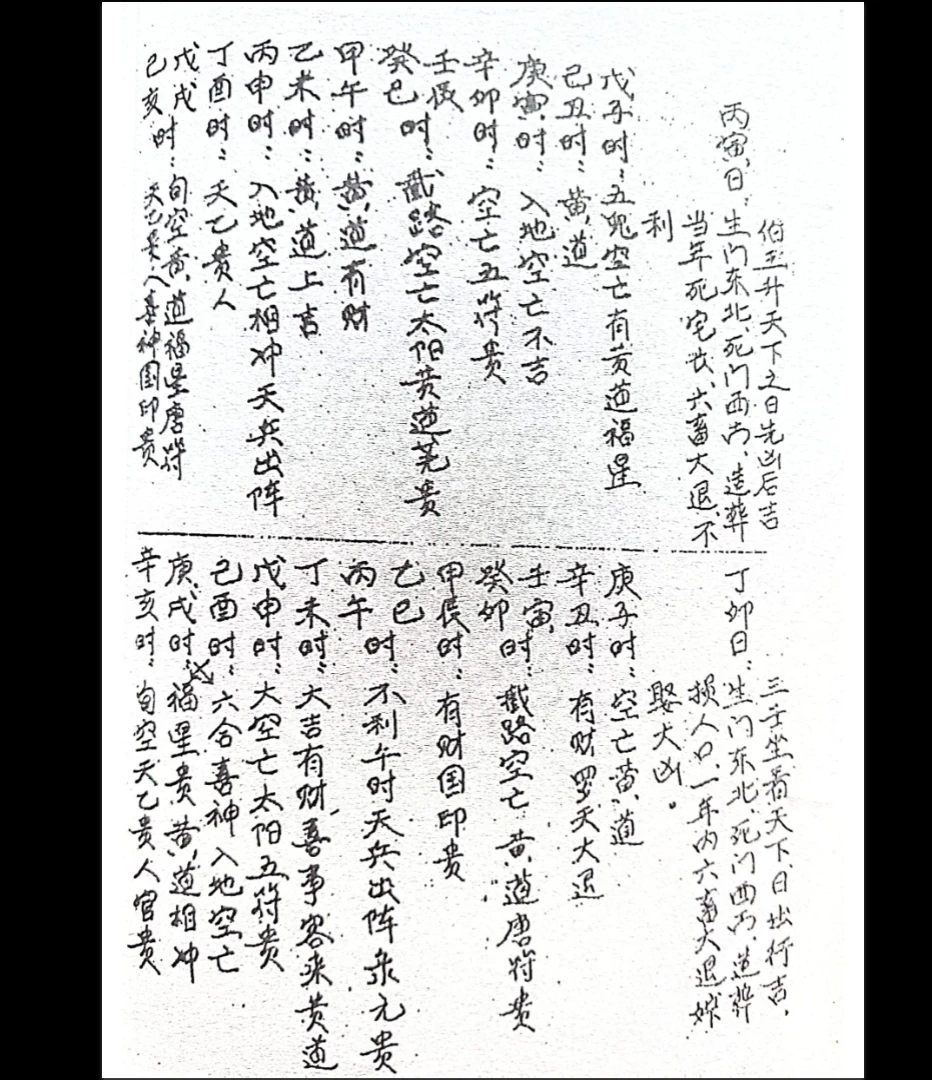 丙寅日：
伯王升天下之日先凶后吉
生门东北、死门西南、造葬
当年死宅长、六畜大退、不
利
戊子时：五鬼空亡有黄道福星
己丑时：黄道
庚寅时：入地空亡不吉
辛卯时：空亡五符贵
壬辰
癸巳时：截路空亡太阳黄道羌贵
甲午时：黄道有财
乙未时：黄道上吉
丙申时：入地空亡相冲天兵出阵
丁酉时：天乙贵人
戊戌
己亥时：旬空黄道福星唐符
天乙贵人喜神国印贵
丁卯日：
三王坐着天下日出行吉、
生门东北、死门西南、造葬
损人口、一年内六畜大退嫁
娶大凶。
庚子时：空亡黄道
辛丑时：有财罗天大退
壬寅
癸卯时：截路空亡 黄道唐符贵
甲辰时：有财国印贵
乙巳
丙午时：不利午时天兵出阵来元贵
丁未时：大吉有财喜事客来黄道
戊申时：大空亡太阳五符贵
己酉时：六合喜神入地空亡
庚戌时：福星贵黄道相冲
辛亥时：旬空天乙贵人官贵